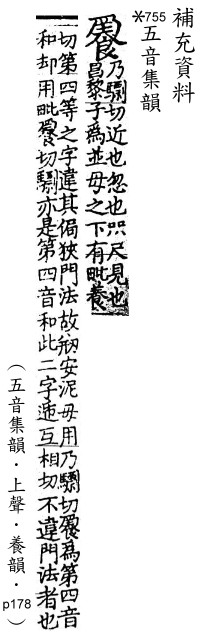 補充資料
*755 五音集韻
乃切近也忽也咫尺見也
昌黎子為並母之下有毗養
切第四等之字違其狹門法故安泥母用乃切為第四音
和却用毗切亦是第四音和此二字遞互相切不違門法者也
(五音集韻・上聲・養韻・p178)